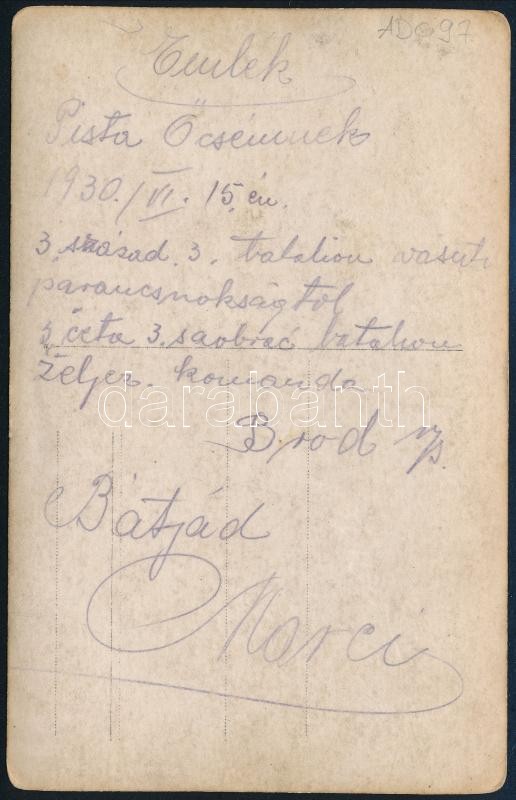 ADC 97
Emlék
Pista Öcsémnek
1930./VI. 15. én.
3. század. 3. batalion vasuti
parancsnokságtol
3 četa 3. saobrać batalion
Željez. komanda
darabanth
Brod n/s.
Bátjád
Marci